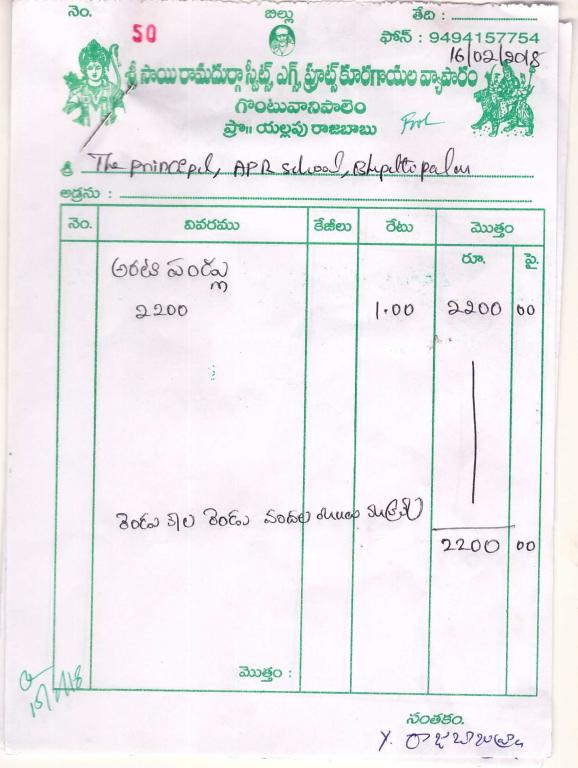 నెం. బిల్లు తేది :
50 ఫోన్ : 9494157754
16/02/2018
శ్రీ సాయి రామదుర్గా స్వీట్స్, ఎగ్స్, ఫ్రూట్స్ కూరగాయల వ్యాపారం
గొంటువానిపాలెం
ప్రొ॥ యల్లపు రాజబాబు
శ్రీ The principel, APR school, Bhpattipalam
అడ్రసు :
నెం. వివరము కేజీలు రేటు మొత్తం
రూ. పై.
అరటి పండ్లు
2200 1.00 2200 00
రెండు వేల రెండు వందల
2200 00
మొత్తం :
సంతకం.
Y. రాజబాబు